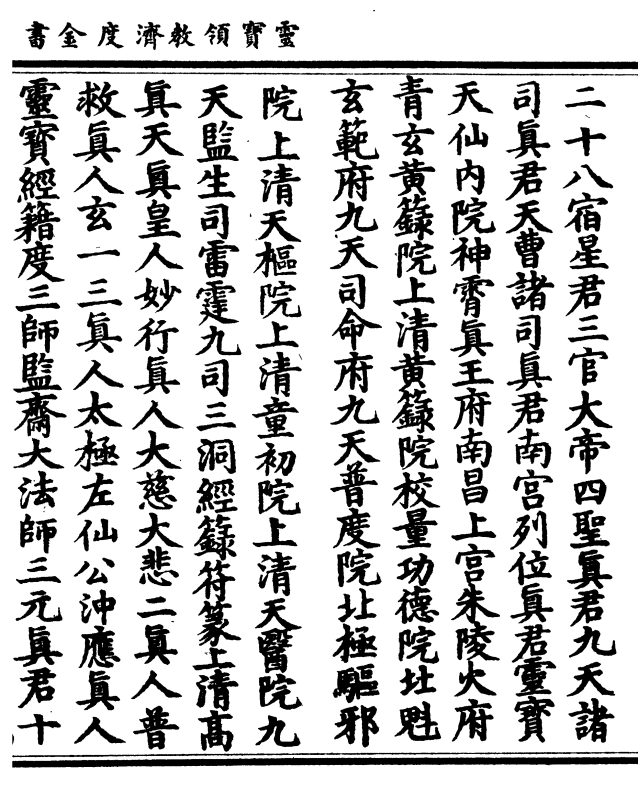 靈寶領教濟度金書
二十八宿星君三官大帝四聖眞君九天諸
司眞君天曹諸司眞君南宫列位眞君靈寶
天仙内院神霄眞王府南昌上宫朱陵火府
青玄黄籙院上清黄籙院校量功德院北魁
玄範府九天司命府九天普度院北極驅邪
院上清天樞院上清童初院上清天醫院九
天監生司雷霆九司三洞經籙符篆上清高
眞天眞皇人妙行眞人大慈大悲二眞人普
救眞人玄一三眞人太極左仙公沖應眞人
靈寶經籍度三師監齋大法師三元眞君十